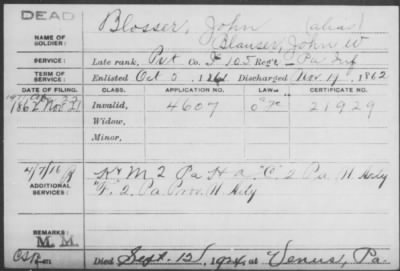 DEAD
Blosser, John (alias)
NAME OF SOLDIER:
Blauser, John W
SERVICE: Late rank, Pvt Co. F 105 Regt. Pa Inf
TERM OF SERVICE: Enlisted Oct 5, 1861 Discharged Nov 19, 1862
DATE OF FILING. CLASS. APPLICATION NO. LAW. CERTIFICATE NO.
1862 Nov 21 Invalid, 4607 21929
Widow,
Minor,
4/7/16
ADDITIONAL SERVICES:
M 2 Pa H a "C" 2 Pa H Arty
"F" 2 Pa Prov. H Arty
REMARKS:
M. M.
Died Sept. 12, 1924, at Venus, Pa.